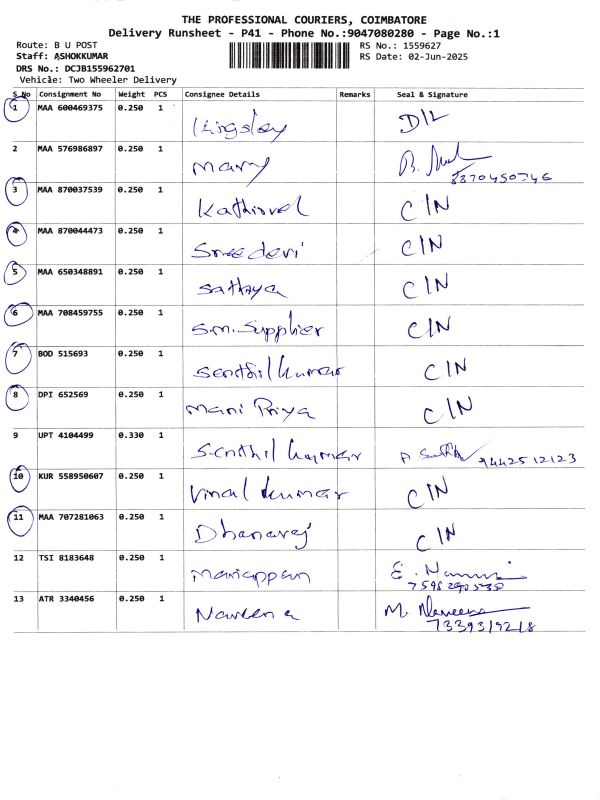 THE PROFESSIONAL COURIERS, COIMBATORE
Delivery Runsheet - P41 - Phone No.:9047080280 - Page No.:1
Route: B U POST
RS No.: 1559627
Staff: ASHOKKUMAR
RS Date: 02-Jun-2025
DRS No.: DCJB155962701
Vehicle: Two Wheeler Delivery
S_No Consignment No Weight PCS Consignee Details Remarks Seal & Signature
1 MAA 600469375 0.250 1 Kingsley D/L
2 MAA 576986897 0.250 1 Mary
3 MAA 870037539 0.250 1 Kathirvel C/N
4 MAA 870044473 0.250 1 Sree devi C/N
5 MAA 650348891 0.250 1 Sathya C/N
6 MAA 708459755 0.250 1 S.M. Supplier C/N
7 BOD 515693 0.250 1 Senthil kumar C/N
8 DPI 652569 0.250 1 Mani Priya C/N
9 UPT 4104499 0.330 1 Senthil kumar 9442512123
10 KUR 558950607 0.250 1 Vimal kumar C/N
11 MAA 707281063 0.250 1 Dhanaraj C/N
12 TSI 8183648 0.250 1 Mariappan
13 ATR 3340456 0.250 1 Naveena M. Naveena
7339319218